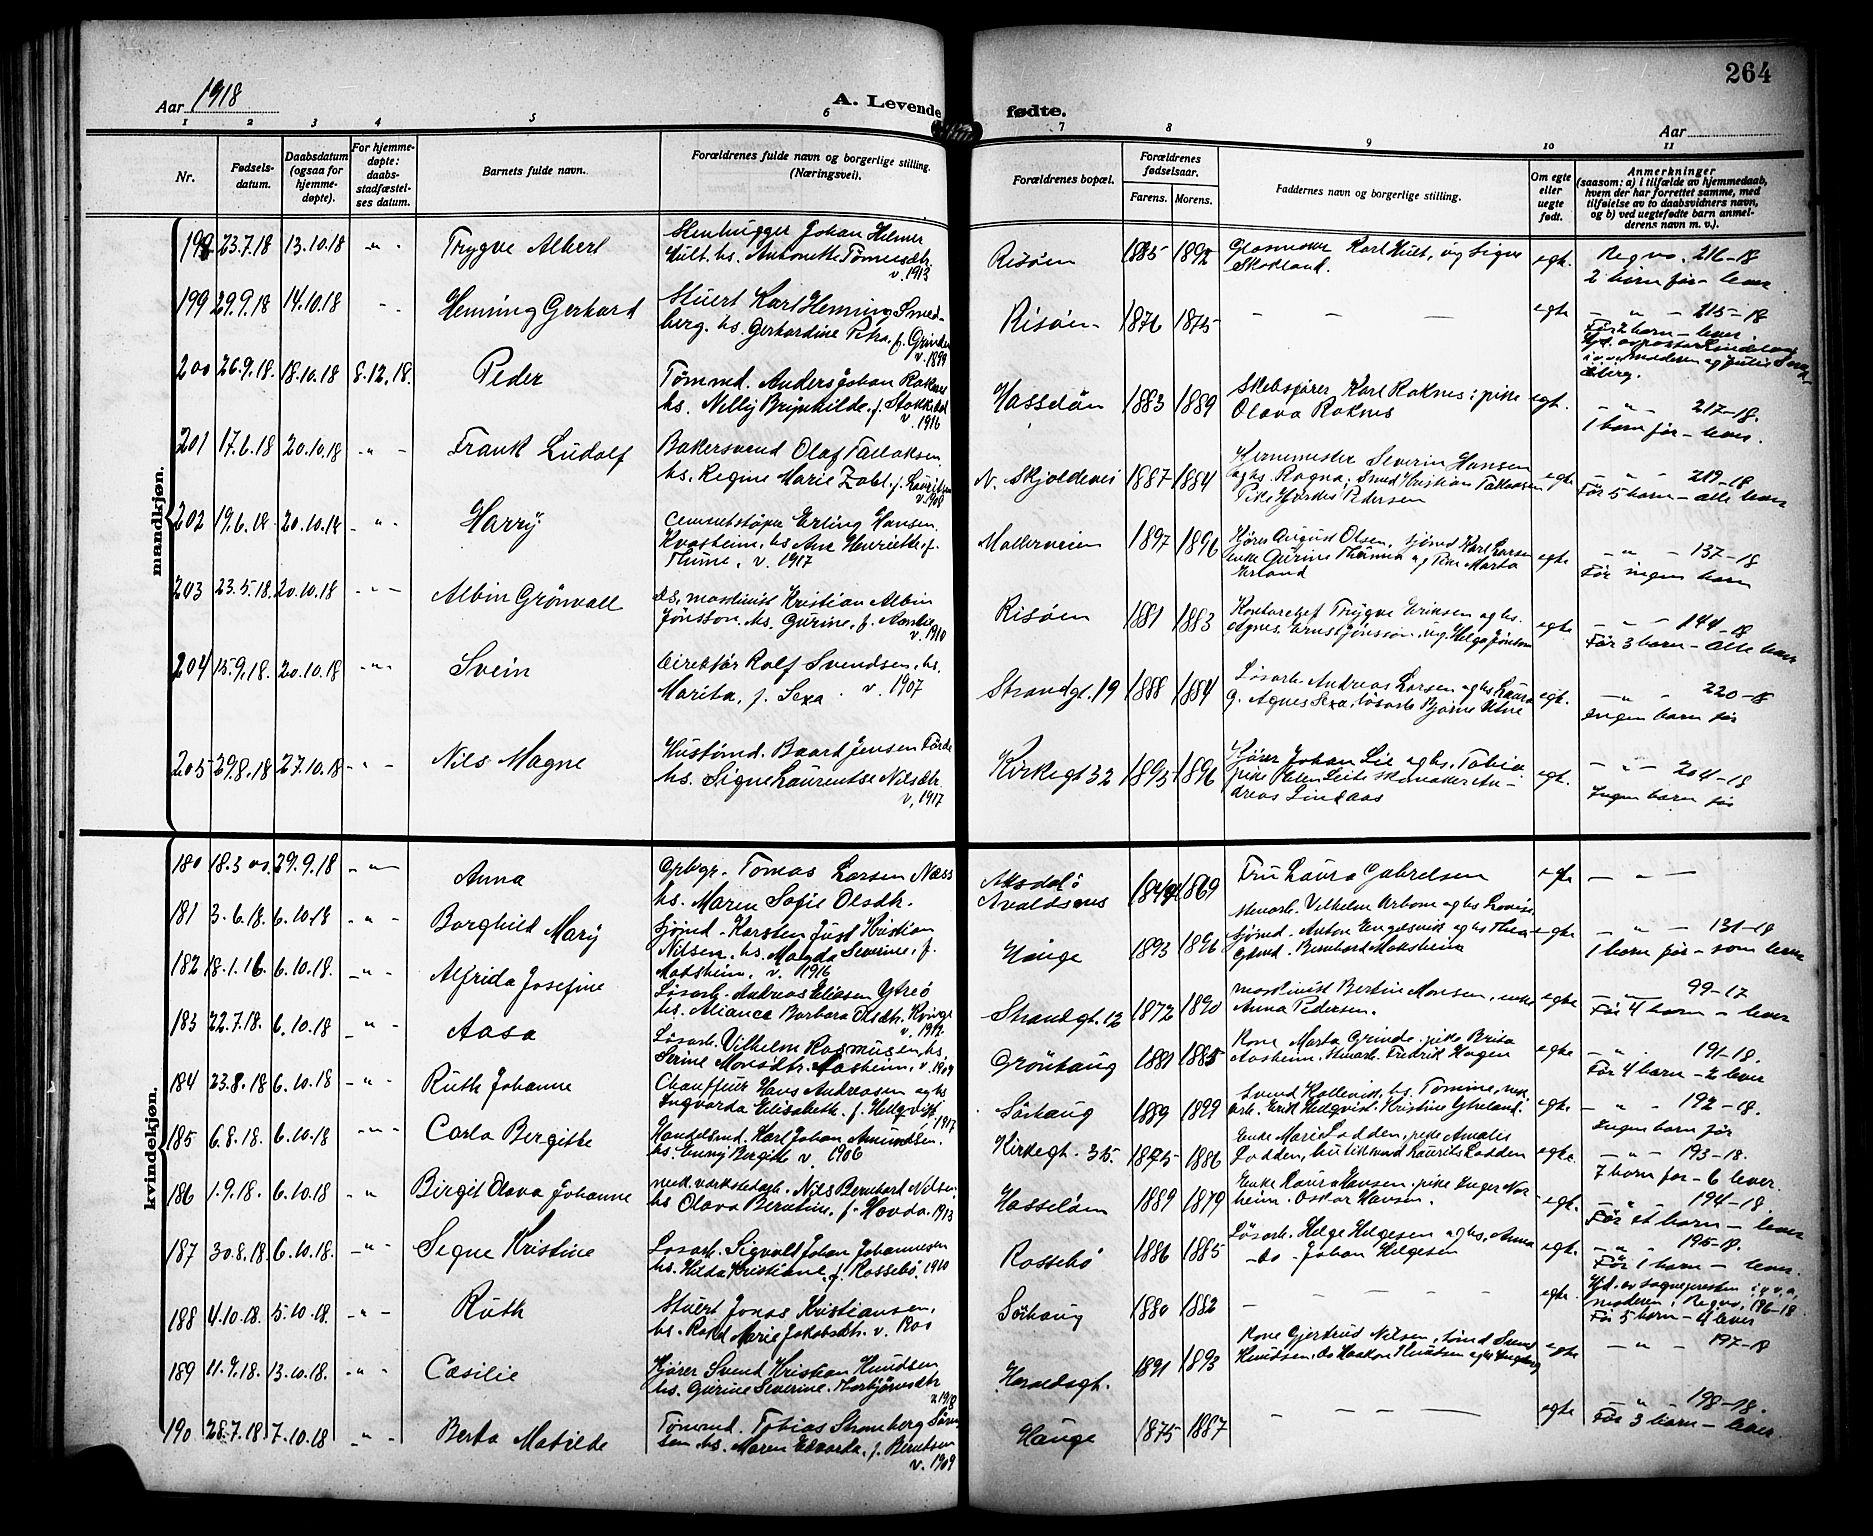 264
Aar 1918
A. Levende fødte.
Aar
1 2 3 4 5 6 7 8 9 10 11
Nr.
Fødsels-
datum.
Daabsdatum
(ogsaa for
hjemme-
døpte).
For hjemme-
døpte:
daabs-
stadfæstel-
ses datum.
Barnets fulde navn.
Forældrenes fulde navn og borgerlige stilling.
(Næringsvei).
Forældrenes bopæl.
Forældrenes
fødselsaar.
Farens. Morens.
Faddernes navn og borgerlige stilling.
Om egte
eller
uegte
født.
Anmerkninger
(saasom: a) i tilfælde av hjemmedaab,
hvem der har forrettet samme, med
tilføielse av to daabsvidners navn,
og b) ved uegtefødte barn anmel-
derens navn m. v.).
mandkjøn.
198 23.7.18 13.10.18 -"- Trygve Albert
Stenhugger Johan Helmer
Hult. hs. Antonette Tønnesdtr.
v. 1913
Risøen 1885 1892
Karl Hult, ug Signe
Skotland.
egte. Reg no. 216-18
2 børn før - lever.
199 29.9.18 14.10.18 - Henning Gerhard
Stuert Karl Henning Smed-
berg. hs. Gerhardine Petra, f. Grinden
v. 1899
Risøen 1876 1875 - - - egte -"- 215-18
Før 2 børn - lever.
200 26.9.18. 18.10.18 8.12.18. Peder
Tømmd. Anders Johan Raknes
hs. Nelly Brynhilde, f. Stokkedal
v. 1916
Hasseløen 1883 1889
Skibsfører Karl Raknes; pike
Olava Raknes
egte. -"- 217-18.
1 barn før - lever.
201 17.6.18 20.10.18 -"- Frank Ludolf
Bakersvend Olaf Tallaksen
hs. Regine Marie Zahl, f. Lauritzen
v. 1908
N. Skjoldevei 1887 1884
Severin Hansen
og hs. Ragna; Smed Kristian Tallaksen
Pike Hjørdis Pedersen
egte -"- 219-18
Før 5 børn - alle lever
202 19.6.18 20.10.18 -"- Harry
Cementstøper Erling Hansen
Kvasheim, hs. Ane Henriette, f.
Thune, v. 1917
Møllerveien 1897 1896
August Olsen, sjømd Karl Larsen
enke Gurine Thunes og Pike Marta
Erland
egte -"- 137-18
Før ingen barn
203 23.5.18. 20.10.18 -"- Albin Grönvall
ds. maskinist Kristian Albin
Jönsson. hs. Gurine, f. Aamlie
v. 1910
Risøen 1881 1883
Kontorchef Trygve Eriksen og hs.
Agnes. Ernst Jönsson, ug. Helga Jönsson
egte. -"- 144-18
Før 3 børn - alle lever
204 15.9.18. 20.10.18 -"- Svein
Direktør Rolf Svendsen, hs.
Marita, f. Sexa. v. 1907
Strandgt. 19 1888 1884
Løsarb. Andreas Larsen og hs Laura
g. Agnes Sexa, løsarb Bjarne
egte. -"- 220-18
Ingen barn før
205 29.8.18 27.10.18 -"- Nils Magne
Hustømd. Baard Jensen Førde
hs. Signe Laurentse Nilsdtr.
v. 1917
Kirkegt 32 1895 1896
Kjører Johan Lie og hs. Tobia
pike Elen Lie; skomaker An-
dreas Lindaas
egte. -"- 204-18
Ingen barn før
kvindekjøn.
180 18.3 08. 29.9.18 -"- Anna
Gpbgr. Tomas Larsen Næss
hs. Maren Sofie Olsdtr.
Aksdal
Avaldsnes 1849 1869
Fru Laura Gabrielsen egte - " -
181 3.6.18. 6.10.18 -"- Borghild Mary
Sjømd. Karsten Just Kristian
Nilsen. hs. Magda Severine, f.
Matsheim, v. 1916
Hauge 1893 1896
Stenarb. Vilhelm Urbom og hs Lovise
Sjømd. Anton Engelsvik og hs Thea
Gdmd. Bernhard Matsheim
egte -"- 131-18
1 barn før - som lever
182 18.1.16. 6.10.18. -"- Alfrida Josefine
Løsarb. Andreas Eliasen Ytreö
hs. Alianca Barbara Olsdtr. Kringe
v. 1912
Strandgt. 12 1872 1890
maskinist Bertin Monsen, enke
Anna Pedersen.
egte -"- 99-17
Før 4 børn - lever
183 22.7.18. 6.10.18 -"- Aasa
Løsarb. Vilhelm Rasmussen, hs.
Serine Monsdtr. Aasheim, v. 1909
Gröntaug 1881 1885
Kone Marta Grinde, pike Brita
Aasheim. Stenarb. Fredrik Hagen
egte -"- 191-18.
Før 4 børn - 2 lever
184 23.8.18 6.10.18 -"- Ruth Johanne
Chauffeur Hans Andreasen og hs
Ingvarda Elisabeth. f. Hellqvist
v. 1917
Sörhaug 1889 1899
Svend Kallevik, hs. Tomine, mek
arb. Erik Hellqvist. Kristine Ytreland.
egte -"- 192-18.
Ingen barn før
185 6.8.18. 6.10.18 -"- Carla Bergitte
Handelsmd. Karl Johan Amundsen.
hs. Enny Bergitte v. 1906
Kirkegt. 35. 1875 1886
Enke Marie Lodden, pike Amalie
Lodden, butiksmd Laurits Lodden
egte. -"- 193-18.
7 børn før - 6 lever.
186 1.9.18. 6.10.18 -" Birgit Olava Johanne
mek verkstedarb. Nils Bernhard Nilsen
hs Olava Berntine, f. Hovda. 1913
Hasseløen 1889 1879
Enke Laura Hansen, pike Inger Nor-
heim. Oskar Hansen.
egte. -"- 194-18.
Før et barn - lever
187 30.8.18 6.10.18. -"- Signe Kristine
Løsarb. Sigvald Johan Johannesen
hs. Hilda Kristiane, f. Rossebö, 1910
Rossebö 1886 1885
Løsarb. Helge Helgesen og hs. Anna
-do- Johan Helgesen
egte. -"- 195-18.
Før 1 barn - lever.
188 4.10.18. 5.10.18. -"- Ruth
Stuert Jonas Kristiansen,
hs. Rakel Marie Jakobsdtr. v. 1900
Sörhaug 1880 1882 - - - - - egte. Hjd. av sognepresten i o.v.a.
moderen; Reg no. 196-18
Før 5 børn - 4 lever
189 11.9.18. 13.10.18. -"- Cæsilie
Kjører Svend Kristian Knudsen
hs. Gurine Severine Torbjörnsdtr
v. 1918
Haraldsgt. 1891 1893
Kone Gjertrud Nilsen, tömd Svend
Knudsen, do Haakon Knudsen og hs Ingeborg
egte -"- 197-18
190 28.7.18 7.10.18 -"- Berta Matilde
Tømmd. Tobias Stromberg Søren-
sen hs. Maren Edvarda, f. Berntsen
v. 1909
Hauge 1875 1887 - - - - egte -"- 198-18.
Før 3 børn - lever.